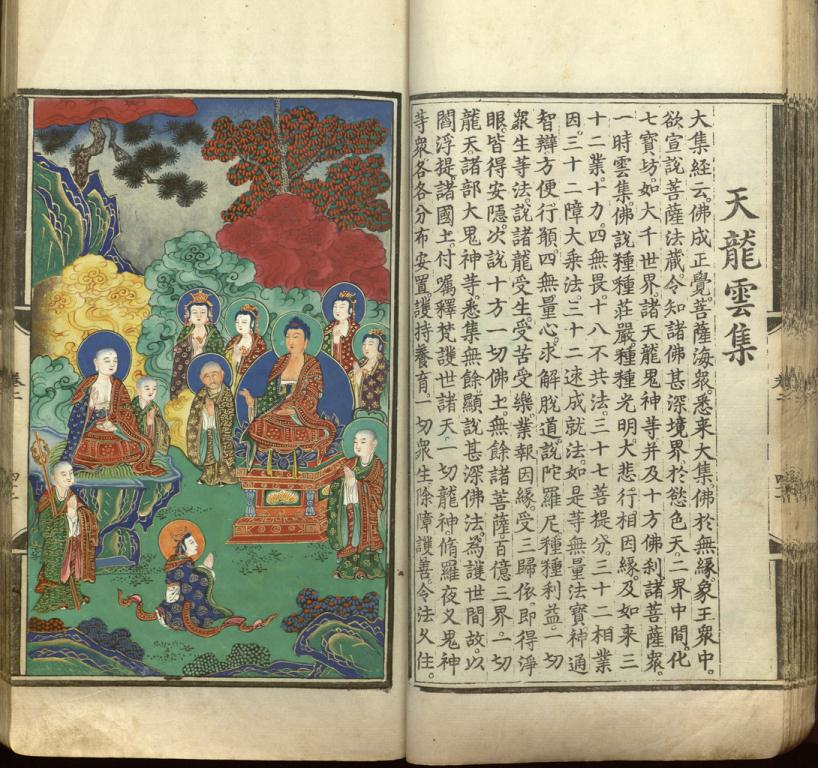 天龍雲集
大集經云。佛成正覺。菩薩海眾。悉来大集。佛於無緣。象王眾中。
欲宣說菩薩法藏。令知諸佛甚深境界。於慾色天。二界中間。化
七寶坊。如大千世界。諸天龍鬼神等。并及十方佛刹。諸菩薩眾。
一時雲集。佛說種種莊嚴。種種光明。大悲行相因緣。及如来三
十二業。十力。四無畏。十八不共法。三十七菩提分。三十二相業
因。三十二障大乘法。三十二速成就法。如是等無量法寶。神通
智辯方便行願。四無量心。求解脫道。說陀羅尼種種利益。一切
眾生等法。說諸龍受生。受苦受樂。業報因緣。受三歸依。即得淨
眼。皆得安隱。次說十方一切佛土。無餘諸菩薩。百億三界。一切
龍天諸部大鬼神等。悉集無餘。顯說甚深佛法。為護世間故。以
閻浮提諸國土。付囑釋梵護世諸天。一切龍神脩羅夜叉鬼神
等眾。各各分布安置。護持養育。一切眾生。除障護善。令法久住。
卷二